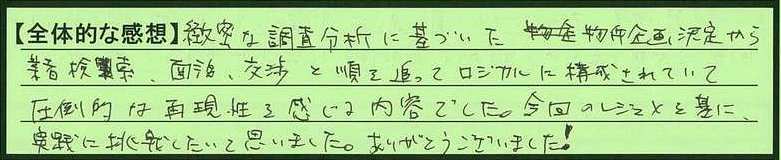 【全体的な感想】緻密な調査分析に基づいた物件企画決定から
業者検索、面談、交渉と順を追ってロジカルに構成されていて
圧倒的な再現性を感じる内容でした。今回のレジメを基に、
実践に挑戦したいと思いました。ありがとうございました!